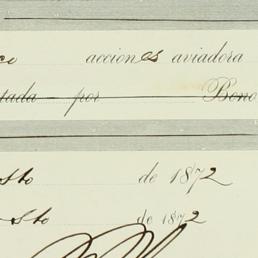 co acciones aviadora
tada por Bono
sto de 1872
sto de 1872